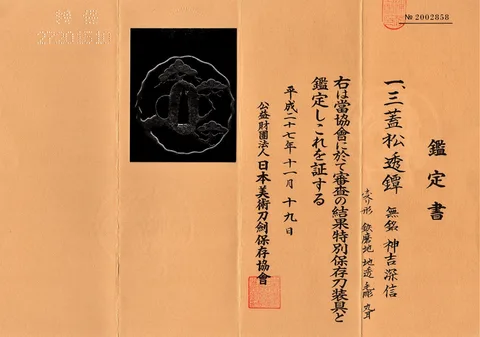 № 2002858
鑑定書
一、三蓋松透鐔 無銘 神吉深信
鉄磨地 地透 毛彫 丸耳
右は當協會に於て審査の結果特別保存刀装具と
鑑定しこれを証する
平成二十七年十一月十九日
公益財團法人日本美術刀劍保存協會